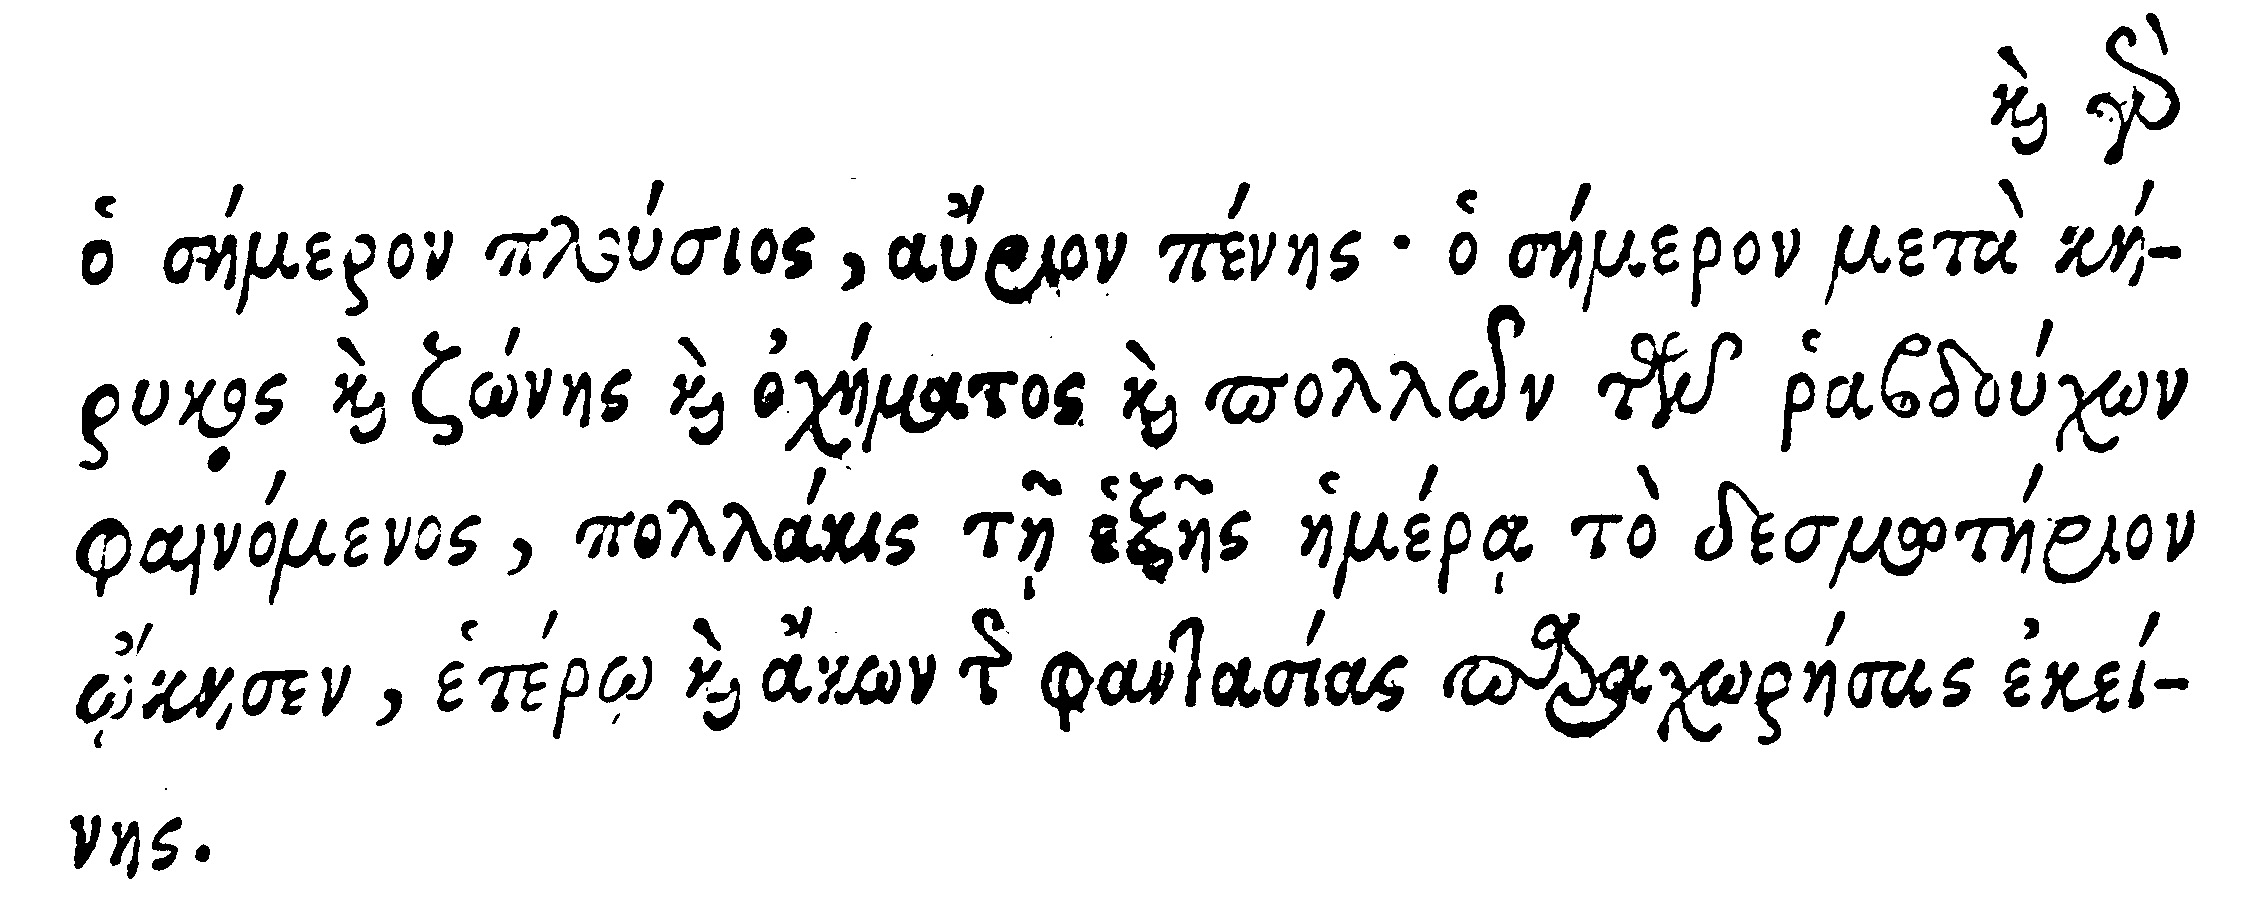 καὶ γὰρ
ὁ σήμερον πλούσιος, αὔριον πένης· ὁ σήμερον μετὰ κή-
ρυκος καὶ ζώνης καὶ ὀχήματος καὶ πολλῶν τῶν ῥαβδούχων
φαινόμενος, πολλάκις τῇ ἑξῆς ἡμέρᾳ τὸ δεσμωτήριον
ᾤκησεν, ἑτέρῳ καὶ ἄκων τῆς φαντασίας παραχωρήσας ἐκεί-
νης.